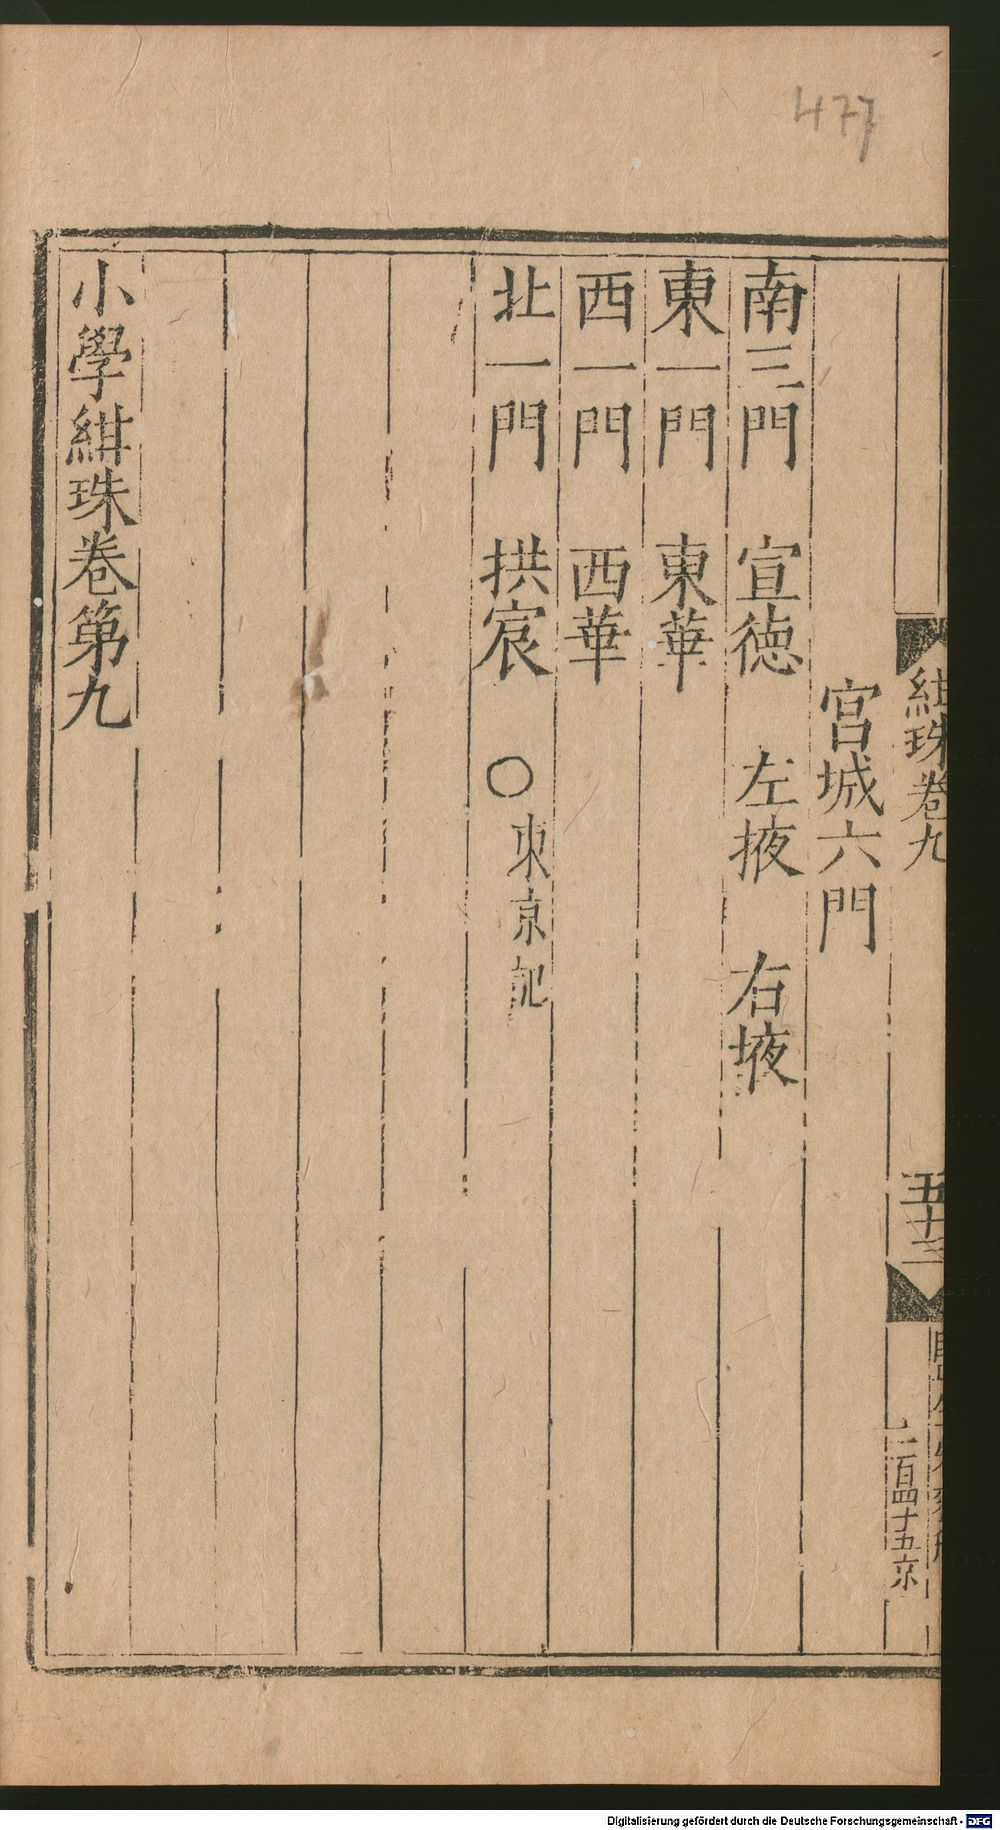 477
紺珠卷九
五十三
宮城六門
南三門　宣德　左掖　右掖
東一門　東華
西一門　西華
北一門　拱宸　○東京記
小學紺珠卷第九
Digitalisierung gefördert durch die Deutsche Forschungsgemeinschaft - DFG